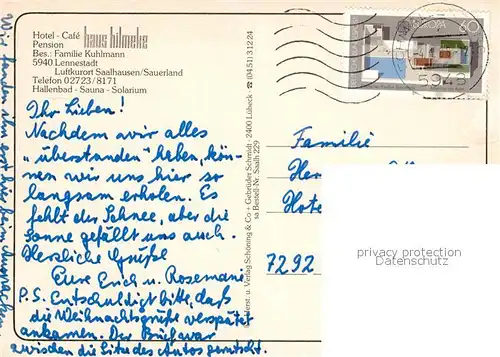 Hotel - Café haus hilmeke
Pension
Bes.: Familie Kuhlmann
5940 Lennestadt
Luftkurort Saalhausen/Sauerland
Telefon 02723/8171
Hallenbad - Sauna - Solarium
Ihr Lieben!
Nachdem wir alles
"überstanden" haben, kön-
nen wir uns hier so
langsam erholen. Es
fehlt der Schnee, aber die
Sonne gefällt uns auch.
Herzliche Grüße
Eure Erich u. Rosemarie
P.S. Entschuldigt bitte, daß
die Weihnachtsgrüße verspätet
ankamen. Der Brief war
zwischen die Sitze des Autos gerutscht.
Wir fanden ihn erst hier beim Auspacken.
Herst. u. Verlag Schöning & Co + Gebrüder Schmidt · 2400 Lübeck · ☎ (04 51) 3 12 24
Bestell-Nr. Saalh 229
60
Familie
Her
Hote
7292
privacy protection
Datenschutz